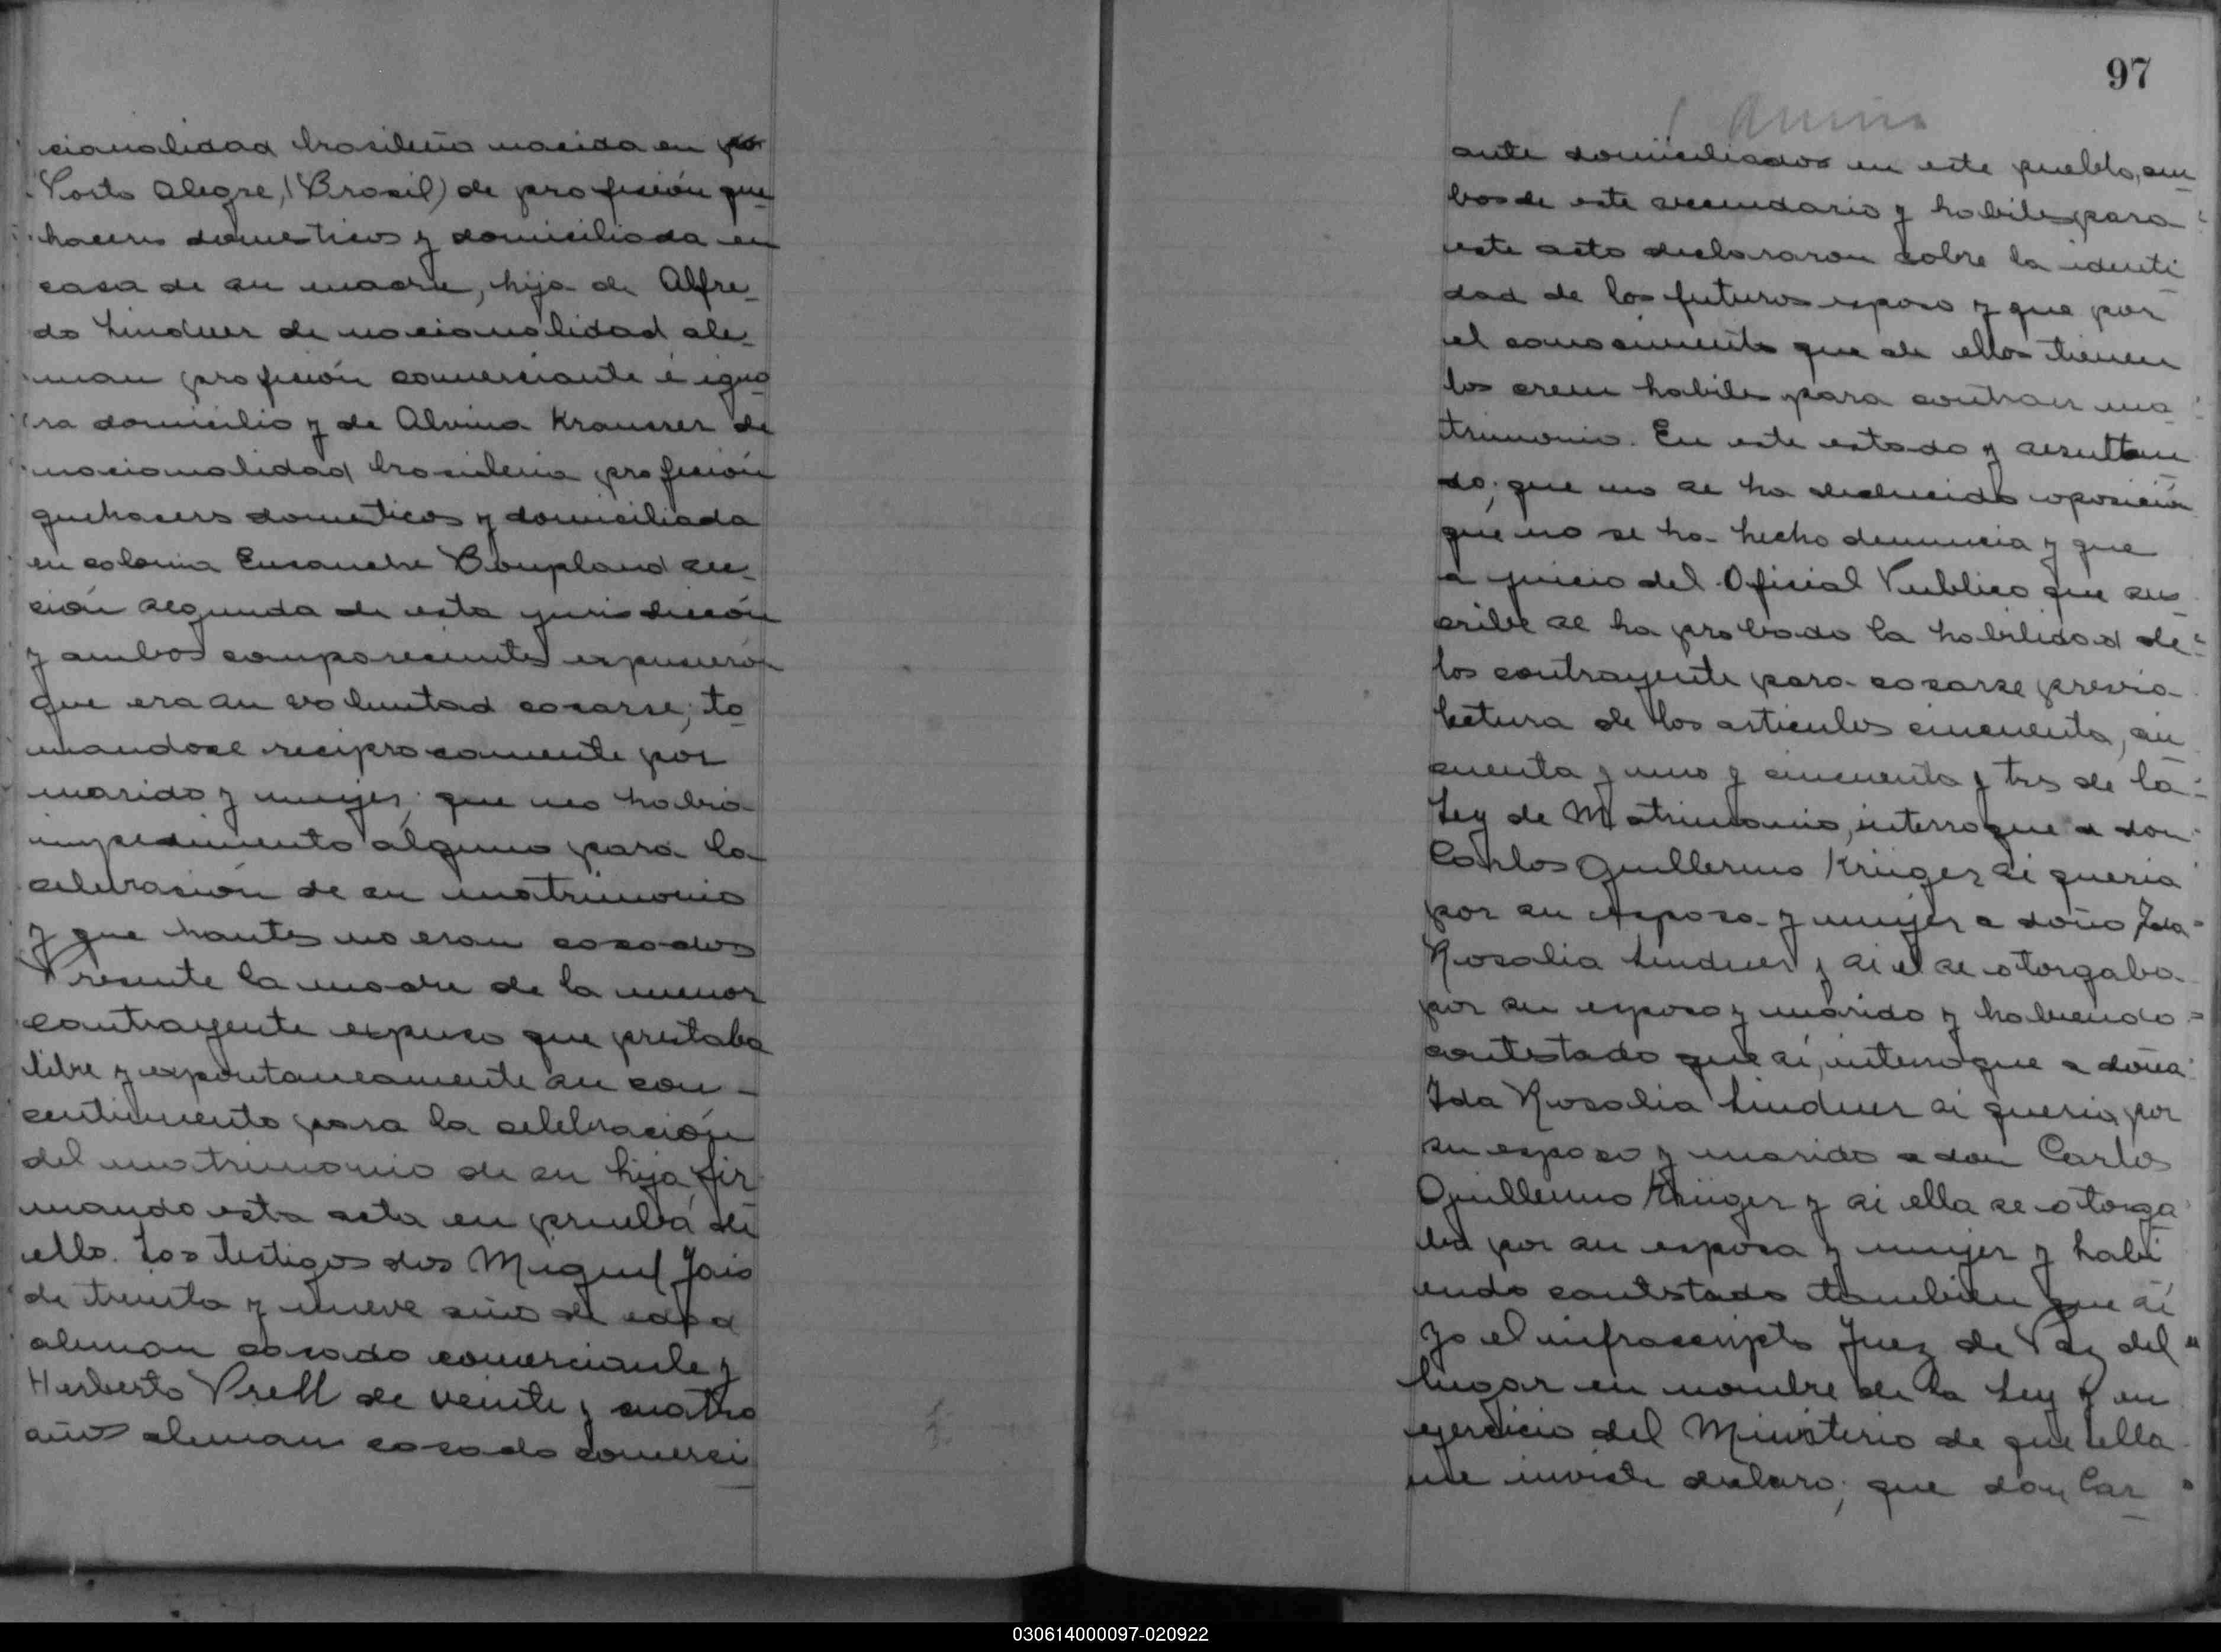 cionalidad brasileña nacida en
Porto Alegre, (Brasil) de profesión que
haceres domesticos y domiciliada en
casa de su madre, hija de Alfre-
do Lindner de nacionalidad ale-
man profesión comerciante é igno
ra domicilio y de Alvina Krausser de
nacionalidad brasilenia profesión
quehaceres domesticos y domiciliada
en colonia Ensanche Bonpland sec-
ción segunda de esta jurisdicción
y ambos comparecientes expusieron
que era su voluntad casarse; to
mandose reciprocamente por
marido y mujer; que no habia
impedimento alguno para la
celebrasión de su matrimonio
y que hantes no eran casados
Presente la madre de la menor
contrayente expuso que prestaba
libre y expontaneamente su con-
centimiento para la celebración
del matrimonio de su hija, fir
mando esta acta en prueba de
ello. Los testigos dos Miguel Jais
de treinta y nueve años de edad
aleman casado comerciante y
Herberto Prell de veinte y cuatro
años aleman casado comerci
97
ante domiiciliados en este pueblo, am
bos de este vecindario y habiles para
este acto declararon sobre la identi
dad de los futuros esposo y que por
el conocimiento que de ellos tienen
los creen habiles para contraer ma
trimonio. En este estado y resultan
do; que no se ha deducido oposición
que no se ha hecho denuncia y que
a juicio del Oficial Publico que sus
cribe se ha probado la habilidad de
los contrayente para casarse previa
lectura de los articulos cincuenta, cin
cuenta y uno y cincuenta y tres de la
Ley de Matrimonio, interrogue a don
Carlos Guillermo Krüger si queria
por su esposa y mujer a doña Ida
Rosalia Lindner y si el se otorgaba
por su esposo y marido y habiendo
contestado que sí, interrogue a doña
Ida Rosalia Lindner si queria por
su esposo y marido a don Carlos
Guillermo Krüger y si ella se otorga
ba por su esposa y mujer y habi
endo contestado tambien que sí
Yo el infrascripto Juez de Paz del
lugar en nombre de la Ley y en
ejercicio del Ministerio de que ella
me inviste declaro; que don Car
030614000097-020922